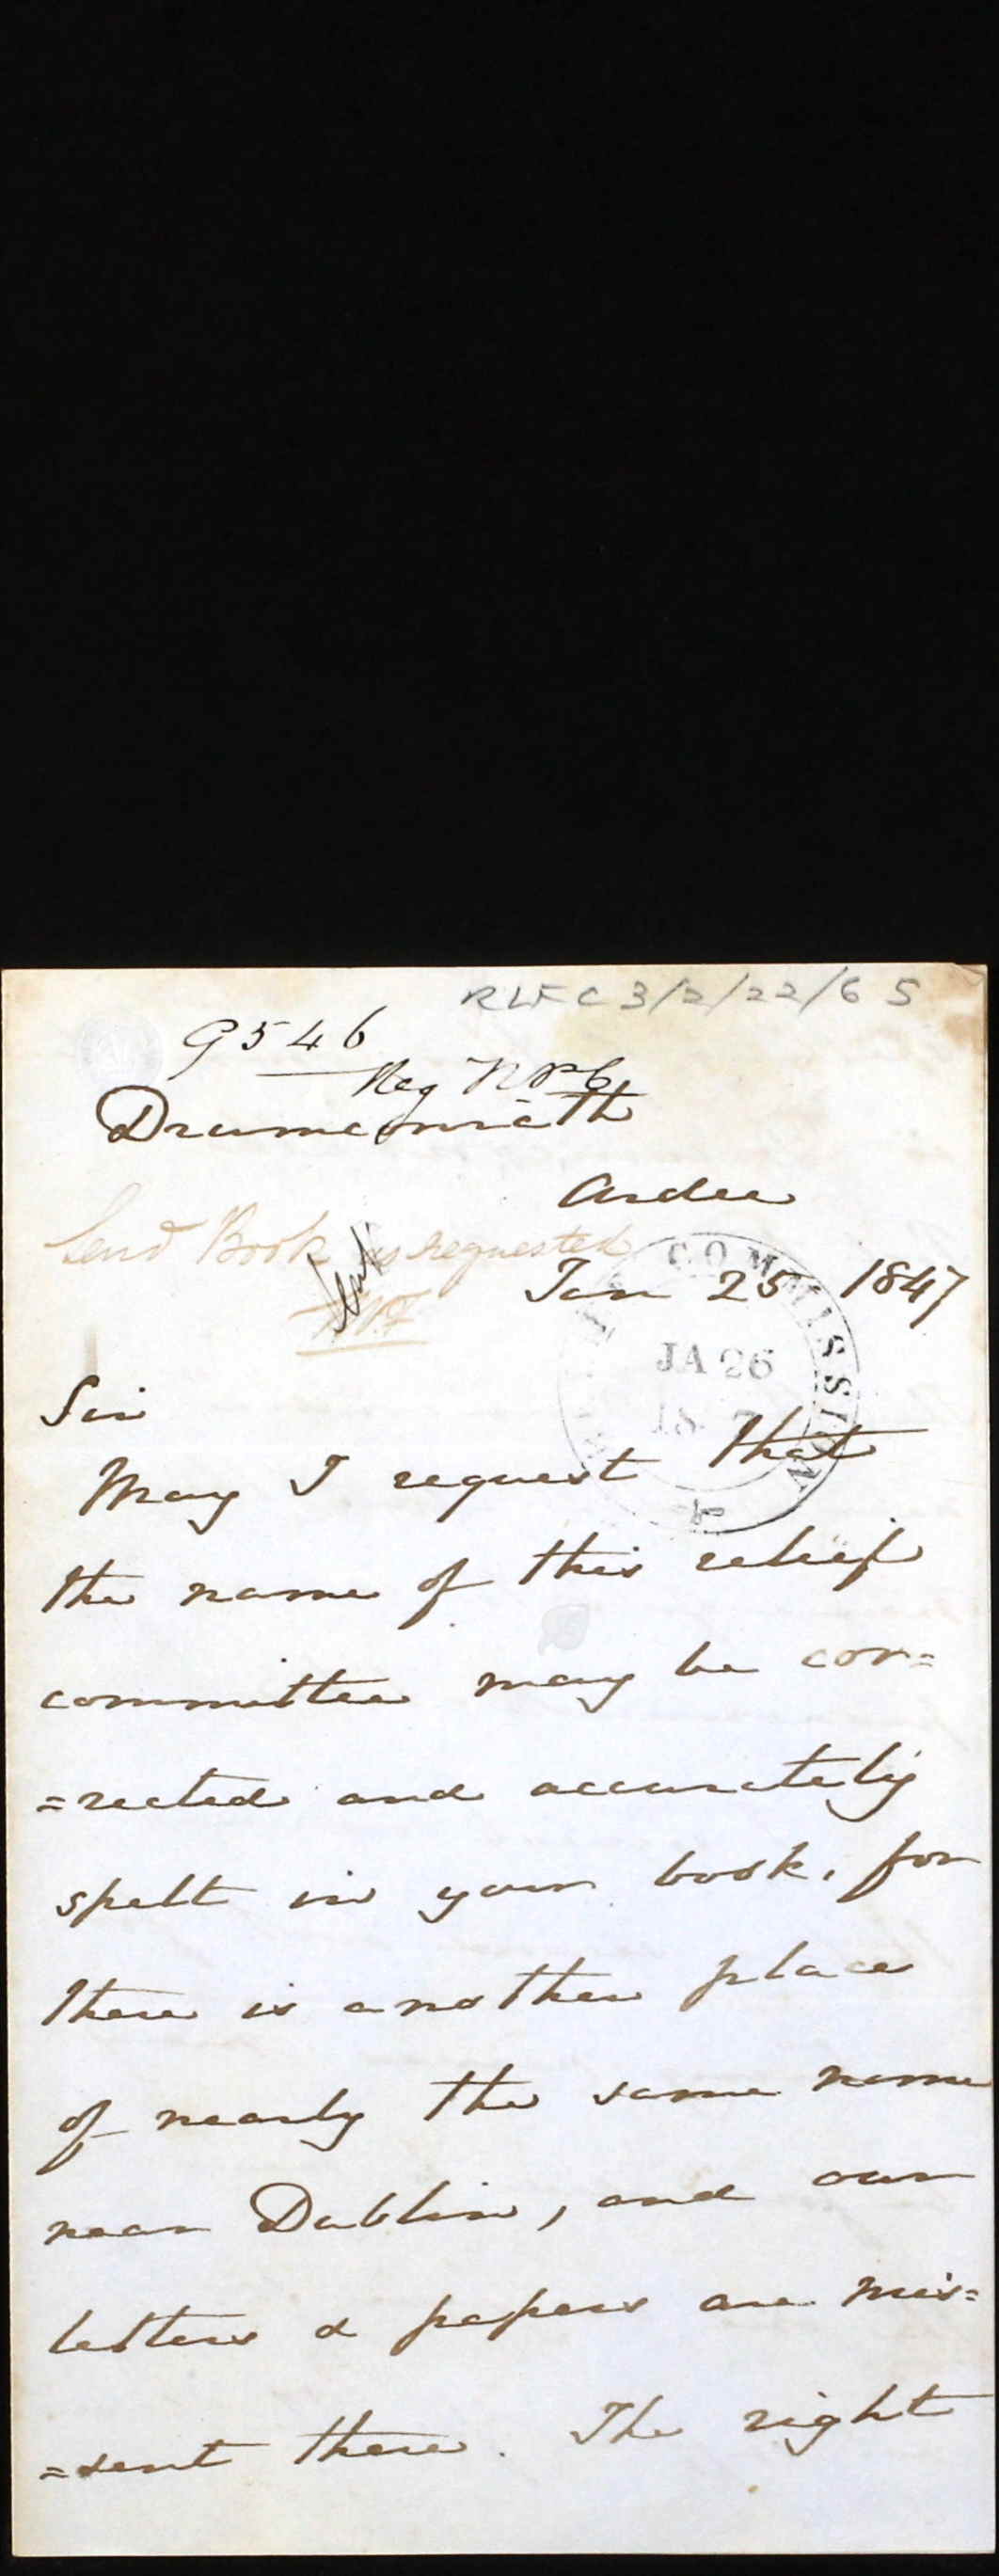 RLFC3/2/22/65
9546
Reg
Drumconrath
Ardee
Send Book as requested
Sent
Jan 25 1847
COMMISSION
JA 26
Sir
May I request that
the name of this relief
committee may be cor=
=rected and accurately
spelt in your book, for
there is another place
of nearly the same name
near Dublin, and our
letters & papers are mis=
=sent there. The right